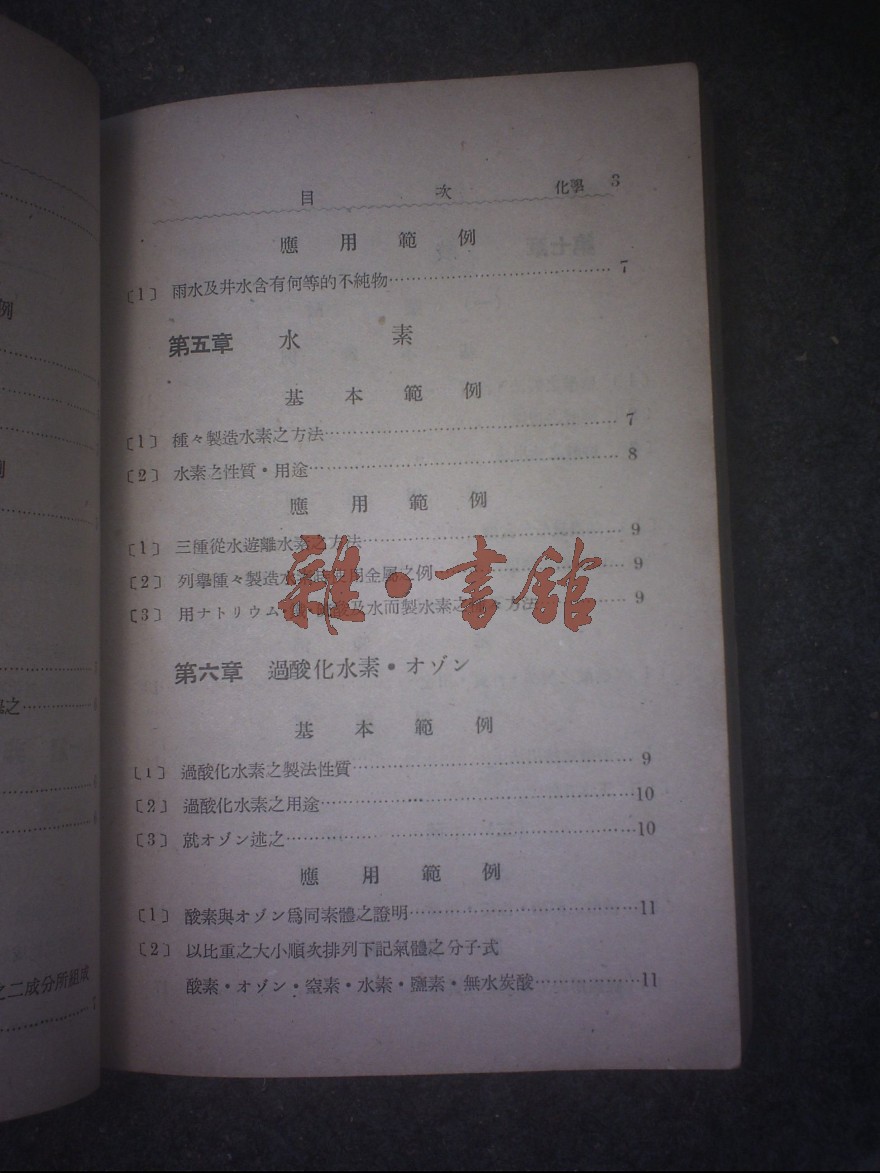 目 次 化學 3
應用範例
〔1〕 雨水及井水含有何等的不純物 7
第五章 水素
基本範例
〔1〕 種々製造水素之方法 7
〔2〕 水素之性質・用途 8
應用範例
〔1〕 三種從水遊離水素之方法 9
〔2〕 列擧種々製造水素 金屬之例 9
〔3〕 用ナトリウム 酸及水而製水素之種々方法 9
雜・書館
第六章 過酸化水素・オゾン
基本範例
〔1〕 過酸化水素之製法性質 9
〔2〕 過酸化水素之用途 10
〔3〕 就オゾン述之 10
應用範例
〔1〕 酸素與オゾン爲同素體之證明 11
〔2〕 以比重之大小順次排列下記氣體之分子式
酸素・オゾン・窒素・水素・鹽素・無水炭酸 11
例
之
之二成分所組成